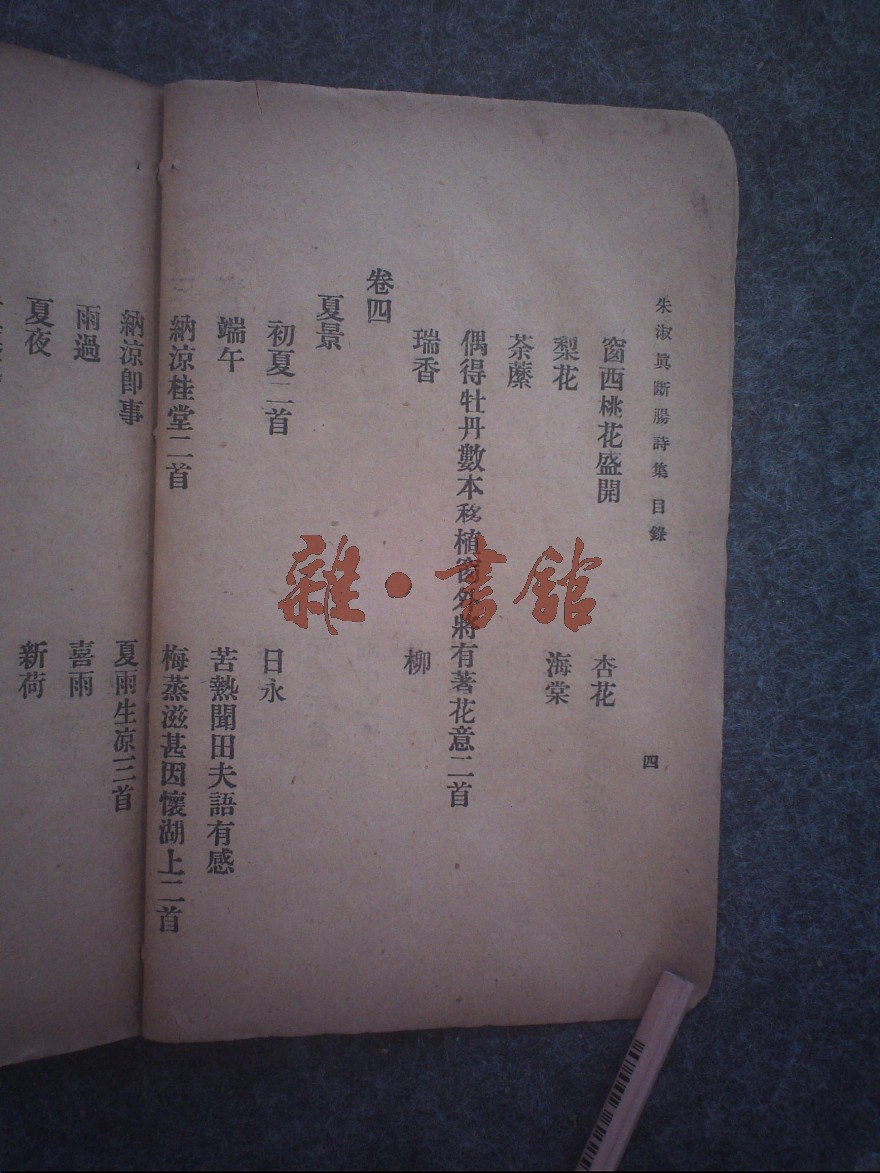 朱淑眞斷腸詩集 目錄 四
窗西桃花盛開 杏花
梨花 海棠
荼蘼
偶得牡丹數本移植窗外將有著花意二首
瑞香 柳
卷四
夏景
初夏二首 日永
端午 苦熱聞田夫語有感
納涼桂堂二首 梅蒸滋甚因懷湖上二首
納涼卽事 夏雨生凉三首
雨過 喜雨
夏夜 新荷
雜·書館